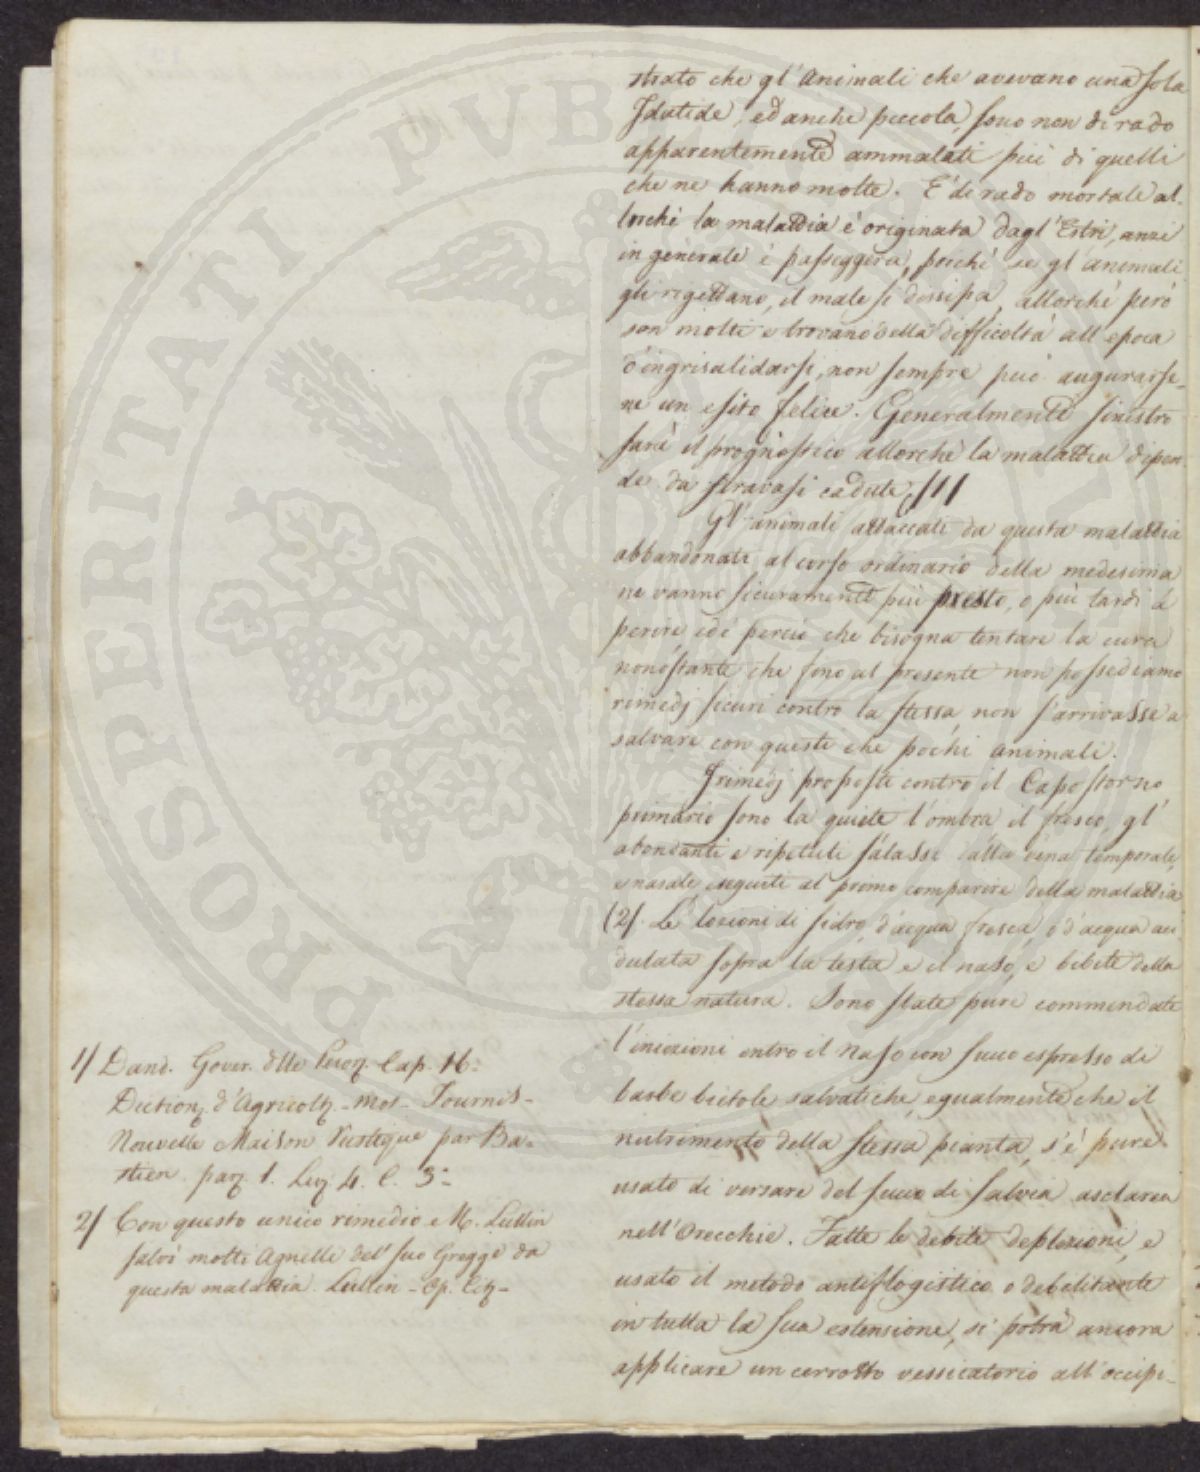 strato che gl'Animali che avevano una sola
Idatide, ed anche piccola, sono non di rado
apparentemente ammalati più di quelli
che ne hanno molte. E' di rado mortale al-
lorchè la malattia è originata dagl'Estri, anzi
in generale è passeggera, poichè se gl'animali
gli rigettano, il male si dissipa, allorchè però
son molti e trovano della difficoltà all'epoca
d'ingrisalidarsi, non sempre può augurarse-
ne un esito felice. Generalmente sinistro
sarà il prognostico allorchè la malattia dipen
de da stravasi cadute (1)
Gl'animali attaccati da questa malattia
abbandonati al corso ordinario della medesima
ne vanno sicuramente più presto, o più tardi à
perire ed è perciò che bisogna tentare la cura
nonostante che fino al presente non possediamo
rimedj sicuri contro la stessa, non s'arrivasse a
salvare con questi che pochi animali.
I rimedj proposti contro il Capostorno
primario sono la quiete l'ombra il fresco, gl'
abondanti e ripetuti salassi alla vena temporale,
e nasale eseguiti al primo comparire della malattia
(2). Le lozioni di sidro, d'acqua fresca, o d'acqua aci
dulata sopra la testa e il naso, e bibite della
stessa natura. Sono state pure commendate
l'iniezioni entro il Naso con succo espresso di
barbe bietole salvatiche, egualmente che il
nutrimento della stessa pianta, s'è pure
usato di versare del succo di Salvia asclarea
nell'Orecchie. Fatte le debite deplezioni, e
usato il metodo antiflogistico o debilitante
in tutta la sua estensione, si potrà ancora
applicare un cerotto vessicatorio all'occipi-
1/ Dand. Gover. dlle Cap. 16:
Diction. d'Agricolt. - mot - Tournis -
Nouvelle Maison Rustique par Ba=
stien. par. 1. Liv. 4. C. 3:
2/ Con questo unico rimedio e M. Lullin
salvò molti Agnelli del suo Gregge da
questa malattia. Lullin - Op. Cit -
PROSPERITATI PUBLICAE